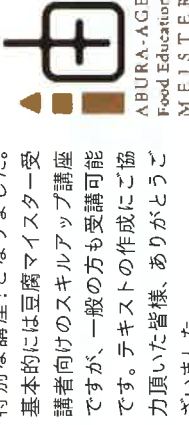 特別な講座！となりました。
基本的には豆腐マイスター受
講者向けのスキルアップ講座
ですが、一般の方も受講可能
です。テキストの作成にご協
力頂いた皆様、ありがとうご
ざいました
ABURA-AGE
Food Education
MEISTER